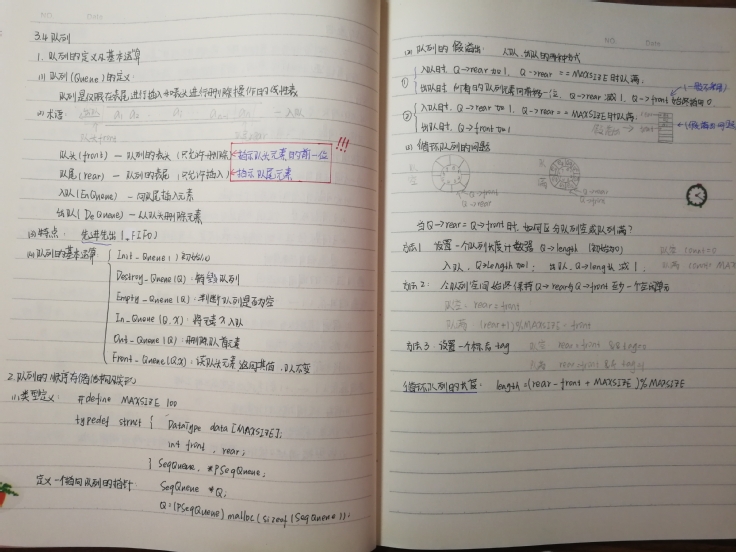 3.4 队列
1. 队列的定义及基本运算
(1) 队列(Queue)的定义:
队列是仅限在表尾进行插入和表头进行删除操作的线性表
(2) 术语: a₁ a₂ — 入队
队头front
!!!
队头(front) — 队列的表头 (只允许删除) 指示队头元素的前一位
队尾(rear) — 队列的表尾 (只允许插入) 指示队尾元素
入队(EnQueue) — 向队尾插入元素
出队(DeQueue) — 从队头删除元素
(3) 特点: 先进先出 (FIFO)
(4) 队列的基本运算
Init_Queue( ) 初始化
Destroy_Queue(Q): 销毁队列
Empty_Queue(Q): 判断队列是否为空
In_Queue(Q,X): 将元素X入队
Out_Queue(Q): 删除队首元素
Front_Queue(Q,X): 读队头元素,返回其值,队不变
2. 队列的顺序存储
(1) 类型定义: #define MAXSIZE 100
typedef struct { DataType data[MAXSIZE];
int front, rear;
} SeqQueue, *PSeqQueue;
定义一个指向队列的指针: SeqQueue *Q;
Q=(PSeqQueue)malloc(sizeof(SeqQueue));
(2) 队列的假溢出: 入队、出队的两种方式
① 入队时, Q->rear加1, Q->rear == MAXSIZE时队满.
出队时, 所有的队列元素向前移一位, Q->rear减1, Q->front始终指向0. (一般不采用)
② 入队时, Q->rear加1, Q->rear == MAXSIZE时队满.
出队时, Q->front加1 (假溢出问题)
(3) 循环队列的问题
空 Q->front Q->rear 满 Q->rear Q->front
当Q->rear = Q->front时, 如何区分队列空或队列满?
方法1. 设置一个队列长度计数器 Q->length (初始为0) 队空 length=0
入队, Q->length加1; 出队, Q->length减1. 队满 length=MAX
方法2: 令队列空间始终保持Q->rear与Q->front至少一个空的单元
队空: rear=front
队满 (rear+1)%MAXSIZE=front
方法3. 设置一个标志tag 队空 rear=front &&
队满 rear=front &&
循环队列的长度: length=(rear-front+MAXSIZE)%MAXSIZE